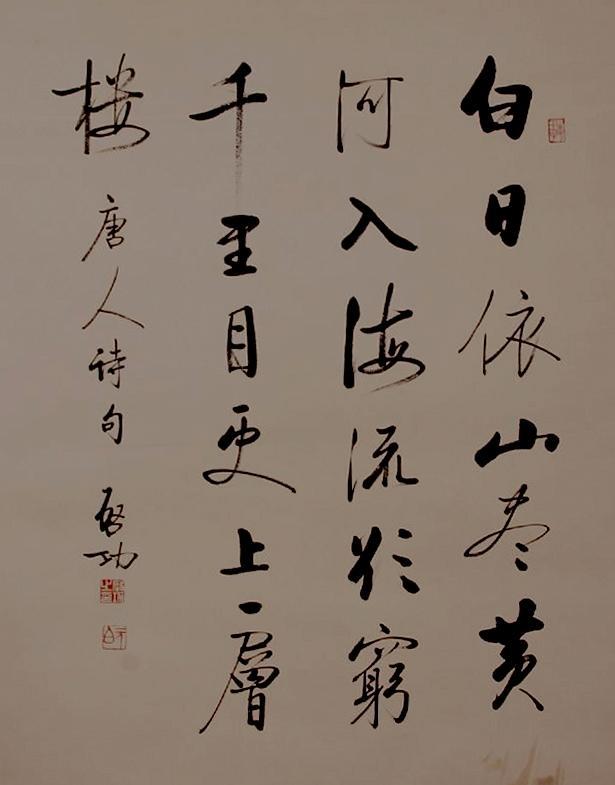 白日依山尽黄
河入海流欲窮
千里目更上一層
楼 唐人诗句 启功